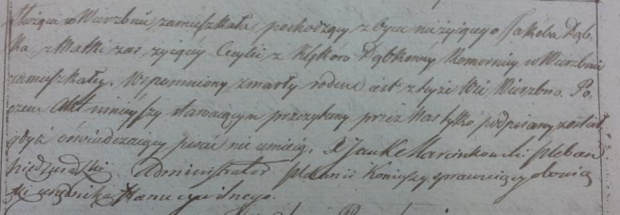 w Wierzbnie zamieszkała pochodzący z Oyca nieżyiącego Jakoba Dąb-
ka z Matki zaś żyiącey Cecylii z Dąbkowey Komornicy w Wierzbnie
zamieszkały. Wspomniony zmarły rodem iest z tyże Wsi Wierzbno. Po-
czem Akt ninieyszy stawaiącym przeczytany przez Nas tylko podpisany został
gdyż oświadczaiący pisać nie umieią. X Marcinkowski Pleban
Administrator Plebanii Koniuszy sprawuiący obowią-
zki Urzędnika Stanu cywilnego.